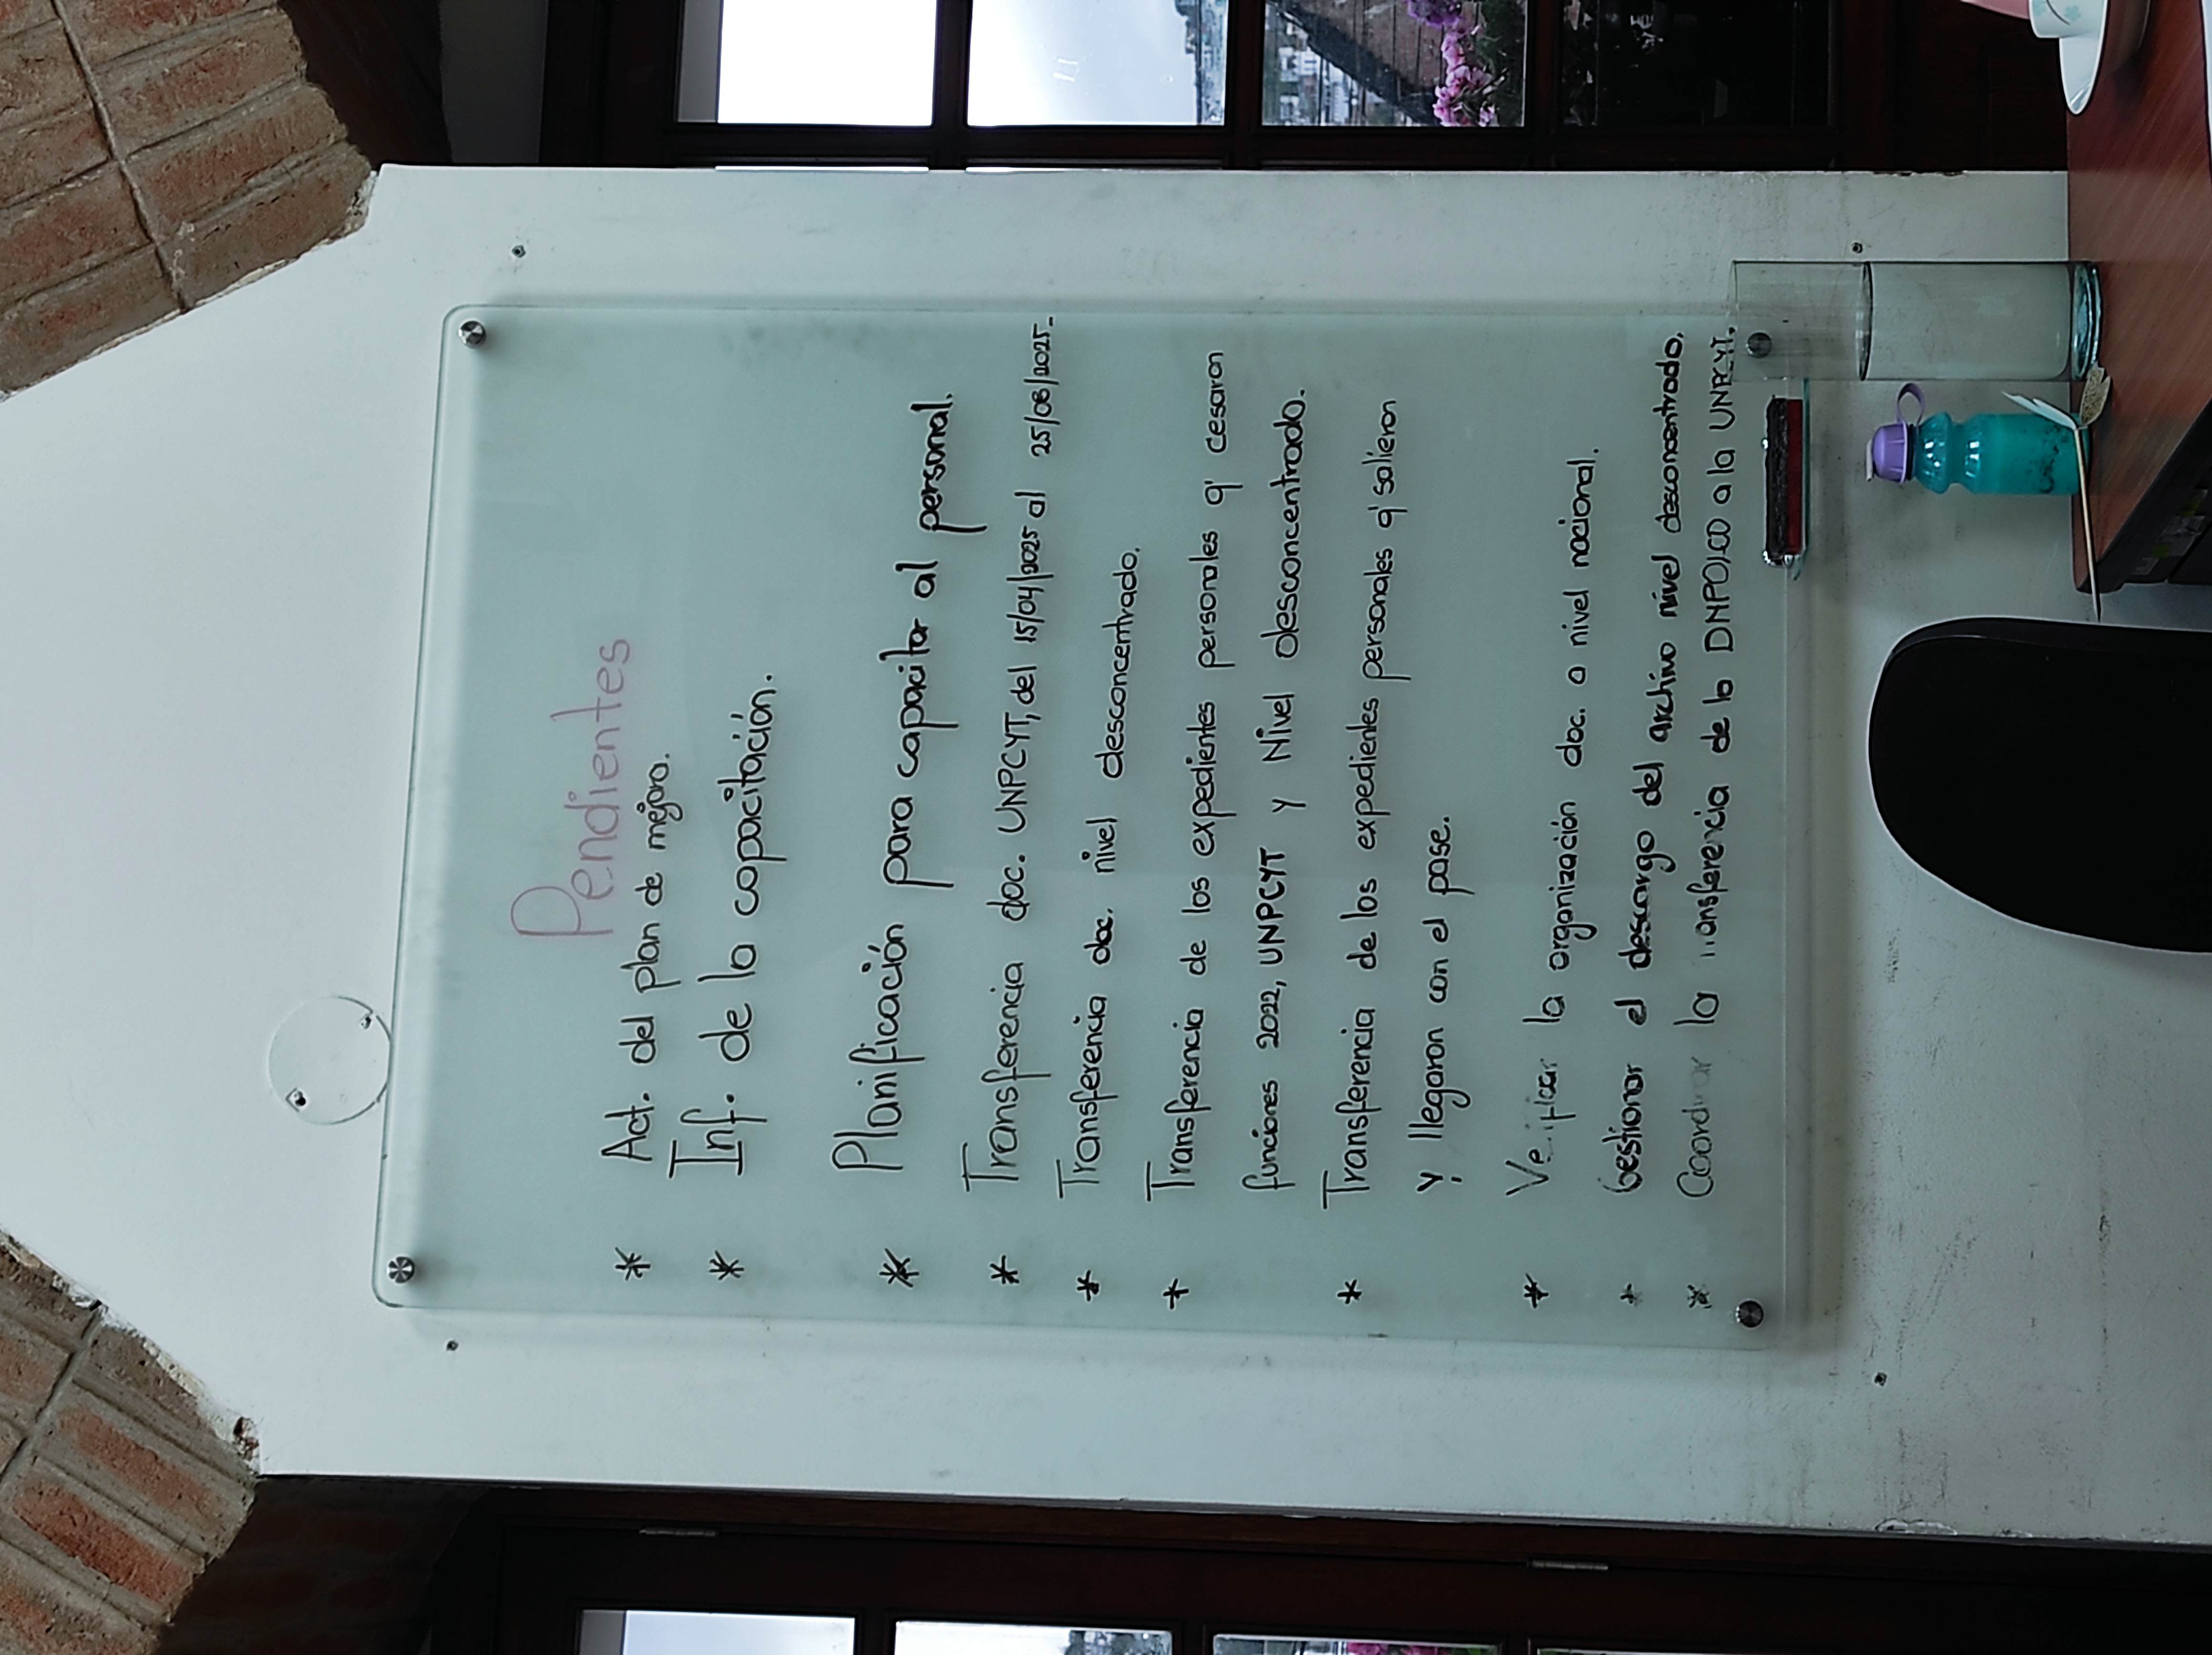 Pendientes
* Act. del plan de mejora.
* Inf. de la capacitación.
* Planificación para capacitar al personal.
* Transferencia doc. UNPCYT, del 15/04/2025 al 25/06/2025.
* Transferencia doc. nivel desconcentrado.
* Transferencia de los expedientes personales q' cesaron
funciones 2022, UNPCYT y Nivel desconcentrado.
* Transferencia de los expedientes personales q' salieron
y llegaron con el pase.
* Verificar la organización doc. a nivel nacional.
* Gestionar el descargo del archivo nivel desconcentrado.
* Coordinar la transferencia de la a la UNPCYT.